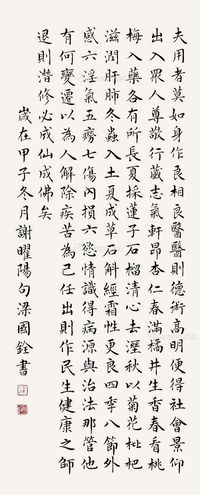 夫用者莫如身作良相良醫醫則德術高明便得社會景仰
出入眾人尊敬行藏志氣軒昂杏仁春滿橘井生香春看桃
梅入藥各有所長夏採蓮子石榴清心去溼秋以菊花枇杷
滋潤肝肺冬蟲入土夏成草石斛經霜性更良四季八節外
感六淫氣五癆七傷內損六慾情識得病源與治法那管他
有何變遷以為人解除疾苦為己任出則作民生健康之師
退則潛修必成仙成佛矣
歲在甲子冬月謝曜陽句梁國銓書